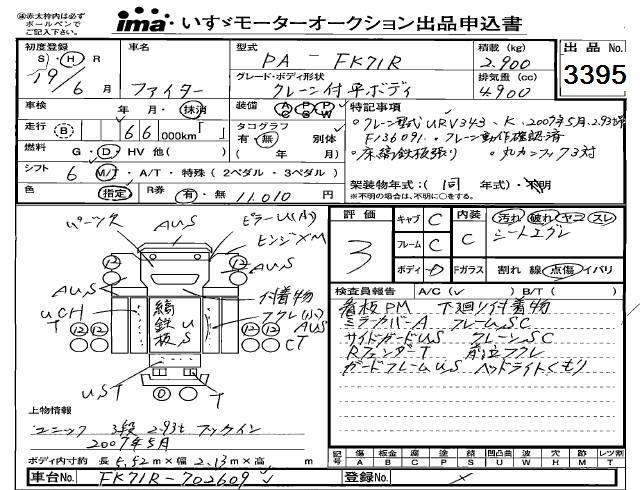 ㊟赤太枠内は必ず
ボールペンで
ご記入下さい。
ima いすゞモーターオークション出品申込書
初度登録 車名 型式 積載 (kg) 出品 No.
S・H R PA - FK71R 2.900
19年6月 ファイター グレード・ボディ形状 排気量 (cc) 3395
クレーン付平ボディ 4900
車検 年 月・抹消 装備 AC PS PW 特記事項
走行 (B) 66 000km 「 」 タコグラフ 別体 ・クレーン型式 URV343・K・2007年5月2.93t
有・無 ( 年 月) F136091・クレーン動作確認済
燃料 G・D・HV 他( ) ・床縞鉄板張り ・丸カンフック3対
シフト 6 M/T・A/T・特殊 (2ペダル・3ペダル)
色 指定 R券 有・無 11,010 円 架装物年式:( 同 年式)・不明
※不明の場合は、不明に○をする。
評価 3
キャブ C 内装 C 汚れ 破れ ヤニ スレ
フレーム C シートエグレ
ボディ D Fガラス 割れ 線 点傷 イバリ
検査員報告 A/C (✓) B/T ( )
看板PM 下廻り付着物
ミラーカバーA フレームSC
サイドガードUS クレーンSC
RフェンダーT 前立フクレ
ガードフレームUS ヘッドライトくもり
パーツX AUS ピラーU(A)
ヒンジXM
12 12
AUS AUS
付着物
UCH フクレ
T 縞鉄板 US AUS
12 12 12 CT
UST 0 T
上物情報
ユニック 3段 2.93t フックイン
2007年5月
ボディ内寸約 長 5.52m×幅 2.13m×高 m
記号 傷 A 板金 B 腐 C 塗 P 錆 S 凹凸曲 U 波 W 穴 H 跡 M レツ割 T
車台No. FK71R-702609 登録No.